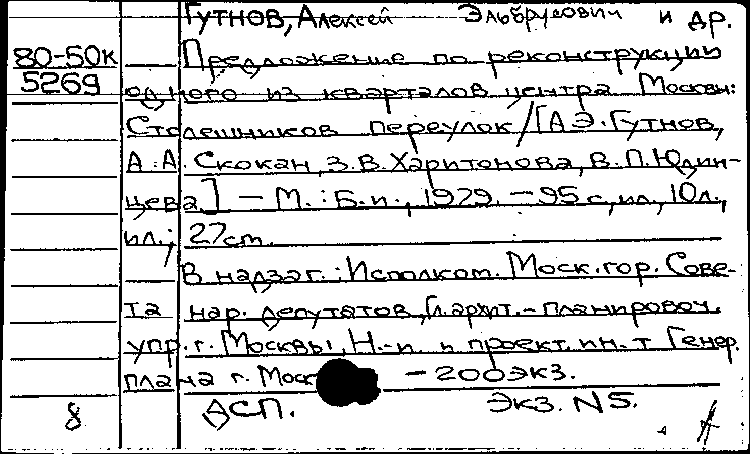 Гутнов, Алексей Эльбрусович и др.
80-50к Предложение по реконструкции
5269 одного из кварталов центра Москвы:
Столешников переулок / [А.Э. Гутнов,
А.А. Скокан, З.В. Харитонова, В.П. Юдин-
цева] – М.: Б.и., 1979. – 95 с., ил., 10 л.,
ил.; 27 cm.
В надзаг.: Исполком. Моск. гор. Сове-
та нар. депутатов, Гл. архит.-планировоч.
упр. г. Москвы, Н.-и. и проект. ин-т Генер.
плана г. Моск – 200 экз.
8 ДСП. Экз. N5.